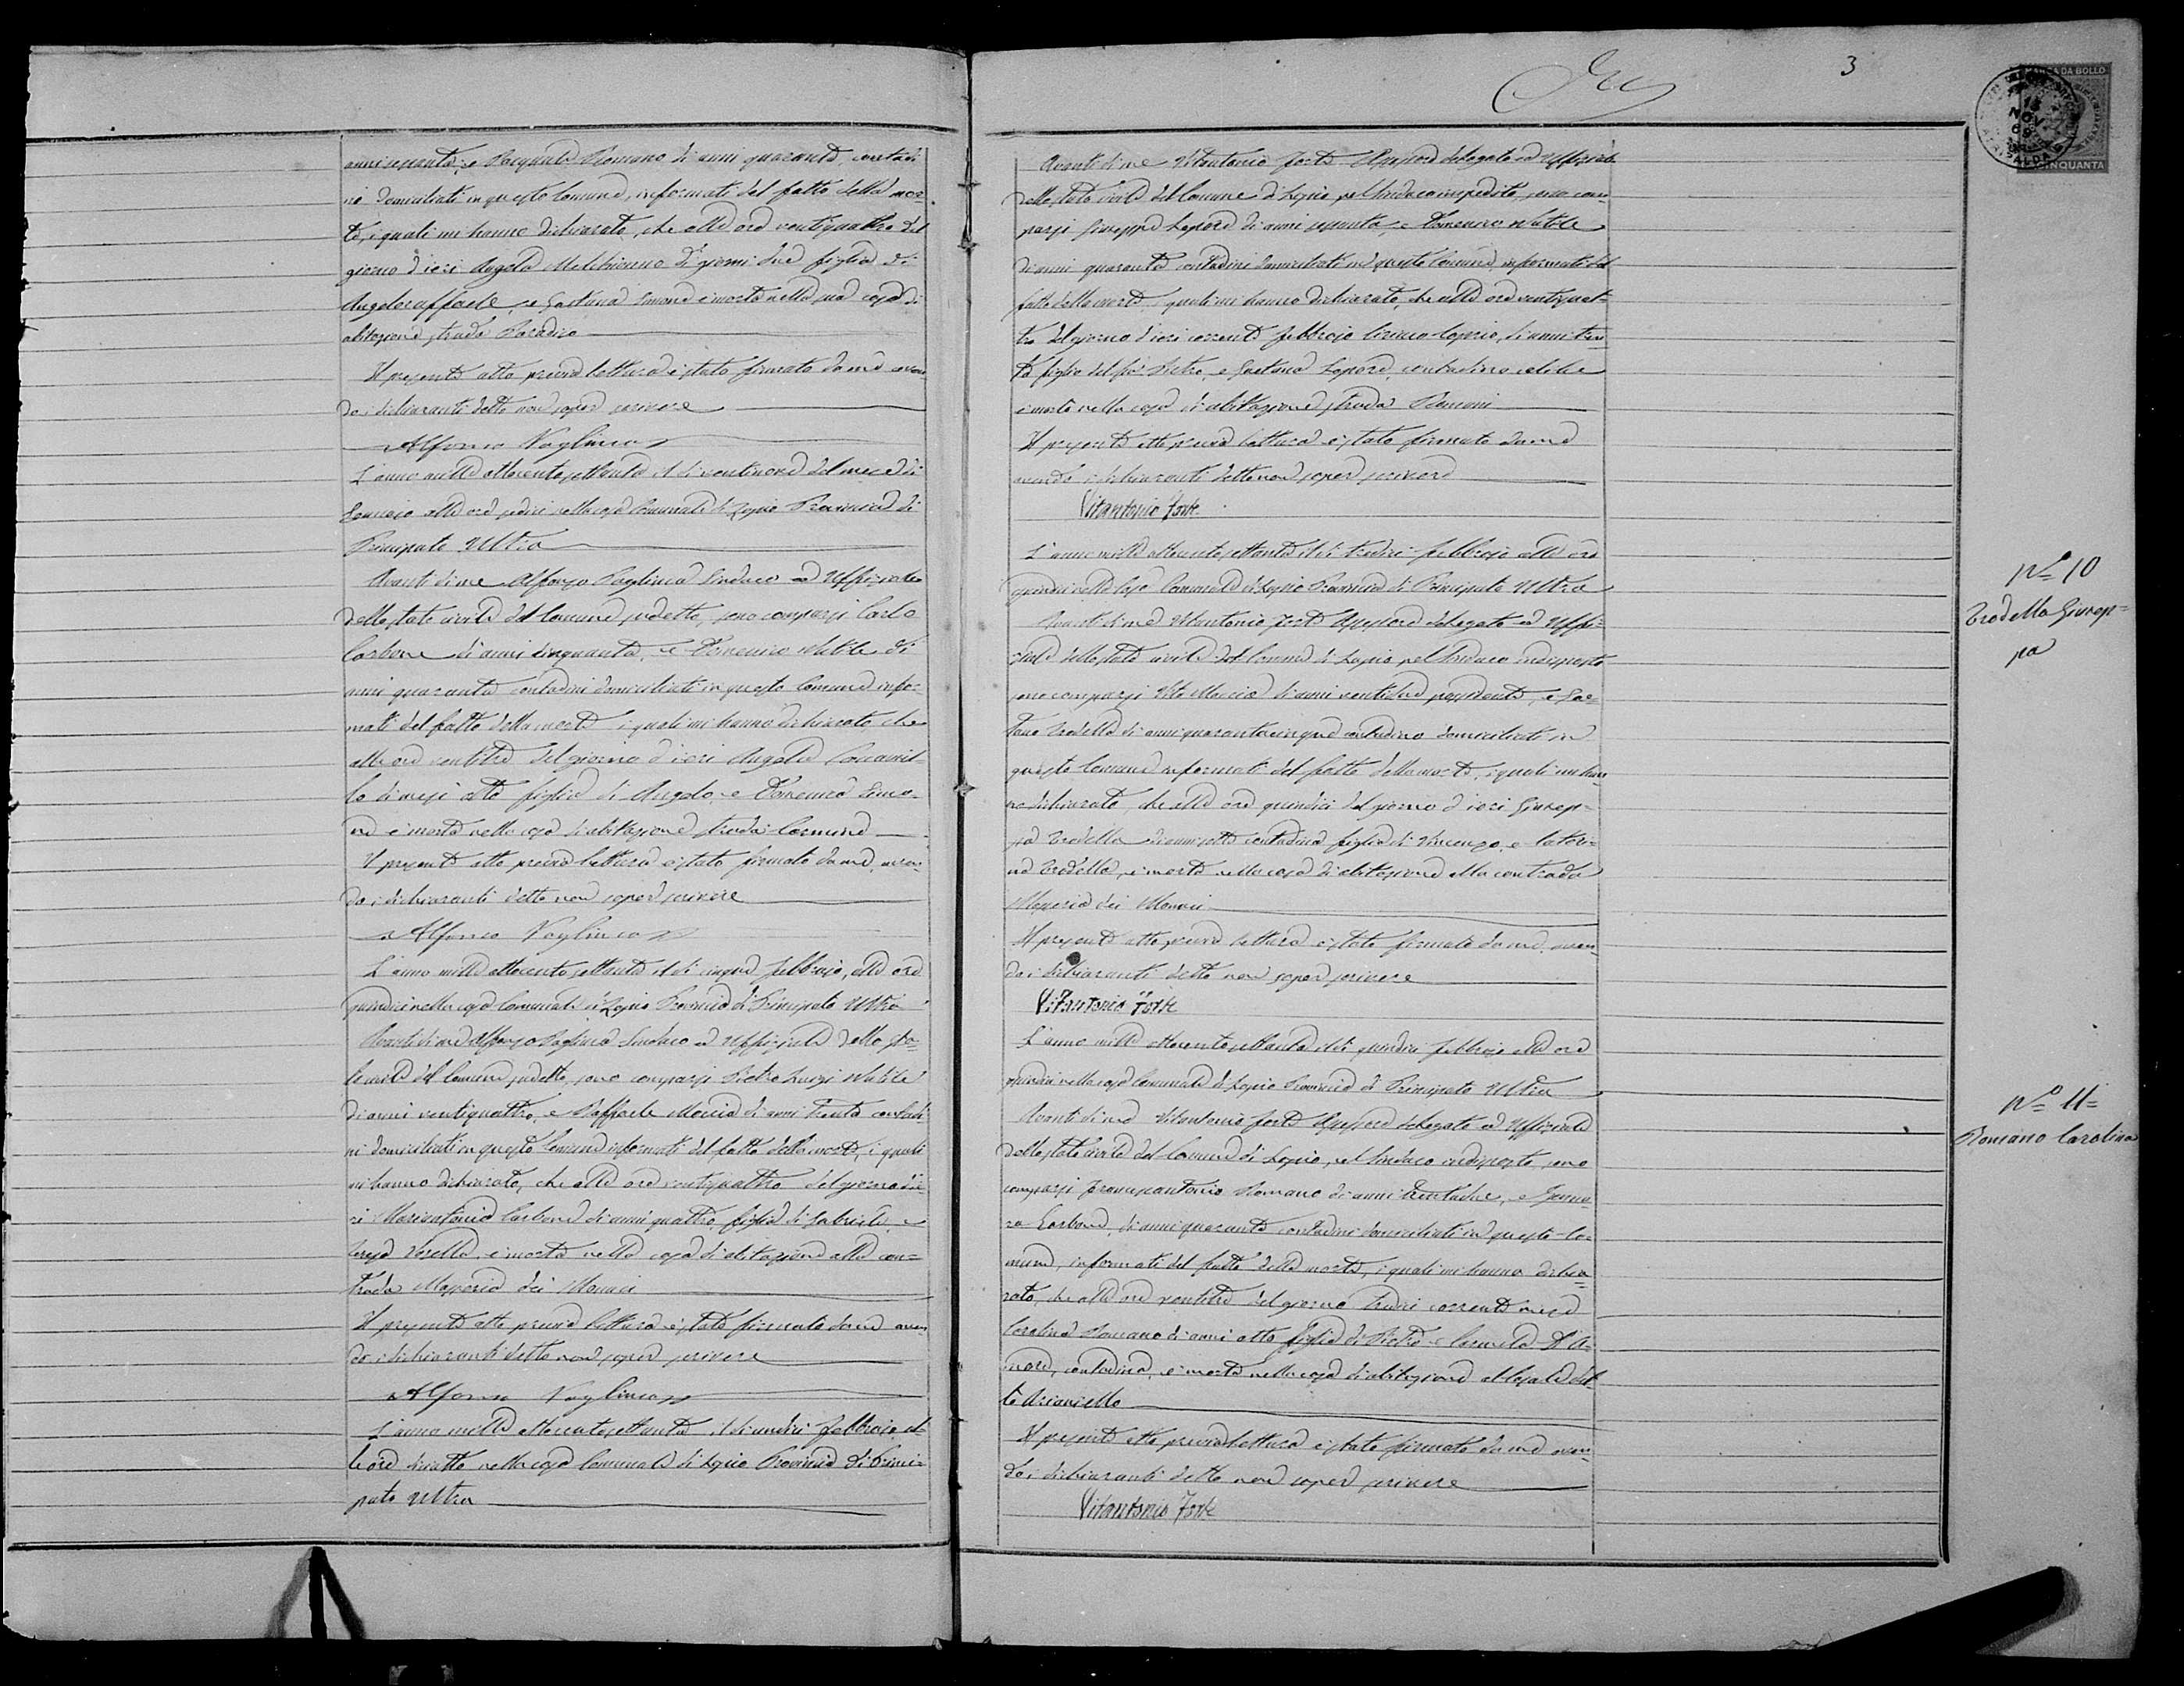 anni sessanta, e Pasquale Romano di anni quaranta, contadi
ni domiciliati in questo Comune, informati del fatto della mor=
te, i quali mi hanno dichiarato, che alle ore ventiquattro del
giorno d'ieri Angela Melchionno di giorni due figlia di
Angeloraffaele, e Gaetana Simone è morta nella sua casa di
abitazione strada Paradiso
Il presente atto previa lettura è stato firmato da me aven
do i dichiaranti detto non saper scrivere
Alfonso Vaglineca
L'anno mille ottocento settanta il dì ventinove del mese di
Gennaio alle ore sedici nella casa Comunale di Lapio Provincia di
Principato Ultra
Avanti di me Alfonso Sindaco ed Uffiziale
dello stato civile del Comune sudetto, sono comparsi Carlo
Carbone di anni cinquanta, e Domenico Nutile di
anni quaranta contadini domiciliati in questo Comune infor=
mati del fatto della morte i quali mi hanno dichiarato che
alle ore ventitre del giorno d'ieri Angela
lo di mesi otto figlia di Angelo, e Domenica Simo=
ne è morta nella casa d'abitazione strada Carmine
Il presente atto previa lettura è stato firmato da me aven=
do i dichiaranti detto non saper scrivere
Alfonso Vaglineca
L'anno mille ottocento settanta il dì cinque febbraio, alle ore
quindici nella casa Comunale di Lapio Provincia di Principato Ultra
Avanti di me Alfonso Sindaco ed Uffiziale dello sta=
to civile del Comune sudetto, sono comparsi Pietro Luigi Nutile
di anni ventiquattro, e Raffaele Moccia di anni trenta contadi
ni domiciliati in questo Comune informati del fatto della morte, i quali
mi hanno dichiarato, che alle ore ventiquattro del giorno d'ie
ri Mariantonia Carbone di anni quattro figlia di Gabriele, e
Teresa è morta nella casa di abitazione alla con=
trada Masseria dei Monaci
Il presente atto previa lettura è stato firmato da me aven
do i dichiaranti detto non saper scrivere
Alfonso Vaglineca
L'anno mille ottocento settanta il dì undici febbraio al=
le ore diciotto nella casa Comunale di Lapio Provincia di Princi=
pato Ultra
Tre
3
MARCA DA BOLLO
15
NOV
69
CINQUANTA
Avanti di me Vitantonio Forte Assessore delegato ed Uffiziale
dello stato civile del Comune di Lapio, pel Sindaco impedito, sono com=
parsi Giuseppe Lepore di anni sessanta, e Domenico Nutile
di anni quaranta contadini domiciliati in questo Comune, informati del
fatto della morte i quali mi hanno dichiarato, che alle ore ventiquat=
tro del giorno d'ieri corrente febbraio Ciriaco di anni tren
ta figlio del fu Pietro, e Gaetana Lepore, contadino celibe
è morto nella casa di abitazione strada
Il presente atto previa lettura è stato firmato da me
avendo i dichiaranti detto non saper scrivere
Vitantonio Forte
L'anno mille ottocento settanta il dì tredici febbraio alle ore
quindici nella Casa Comunale di Lapio Provincia di Principato Ultra
Avanti di me Vitantonio Forte Assessore delegato ed Uffi=
ziale dello stato civile del Comune di Lapio pel Sindaco indisposto
sono comparsi Vito Moccia di anni ventidue possidente, e Gae=
tano Trodella di anni quarantacinque contadino domiciliati in
questo Comune informati del fatto della morte, i quali mi han
no dichiarato, che alle ore quindici del giorno d'ieri Giusep=
pa Trodella di anni sette contadina figlia di Vincenzo, e Cateri=
na Trodella, è morta nella casa di abitazione alla contrada
Masseria dei Monaci
Il presente atto previa lettura è stato firmato da me aven
do i dichiaranti detto non saper scrivere
Vitantonio Forte
L'anno mille ottocento settanta il dì quindici febbraio alle ore
quindici nella casa Comunale di Lapio Provincia di Principato Ultra
Avanti di me Vitantonio Forte Assessore delegato ed Uffiziale
dello stato civile del Comune di Lapio, pel Sindaco indisposto, sono
comparsi Francescantonio Romano di anni trentadue, e Genna
ro Carbone, di anni quaranta contadini domiciliati in questo Co=
mune, informati del fatto della morte, i quali mi hanno dichia
rato, che alle ore ventitre del giorno tredici corrente mese
Carolina Romano di anni otto figlia di Pietro e Carmela D'A=
more, contadina, è morta nella casa di abitazione al locale det
to Arianiello
Il presente atto previa lettura è stato firmato da me aven
do i dichiaranti detto non saper scrivere
Vitantonio Forte
N.º 10
Trodella Giusep=
pa
N.º 11=
Romano Carolina